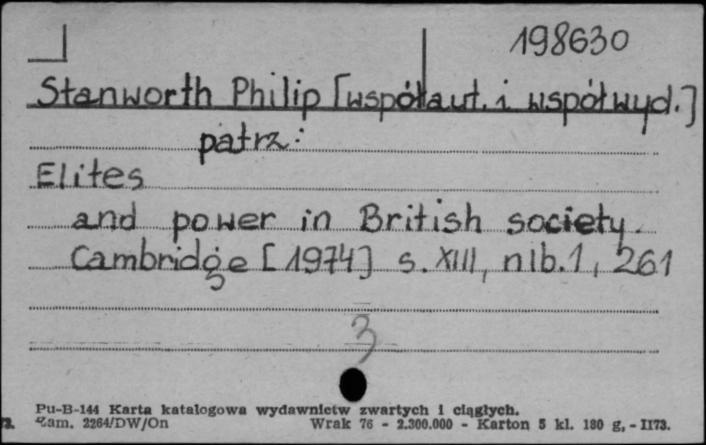 198630
Stanworth Philip [współaut. i współwyd.]
patrz:
Elites
and power in British society.
Cambridge [1974] s. XIII, nlb. 1, 261
3
Pu-B-144 Karta katalogowa wydawnictw zwartych i ciągłych.
Zam. 2264/DW/On Wrak 76 - 2.300.000 - Karton 5 kl. 180 g, - II73.